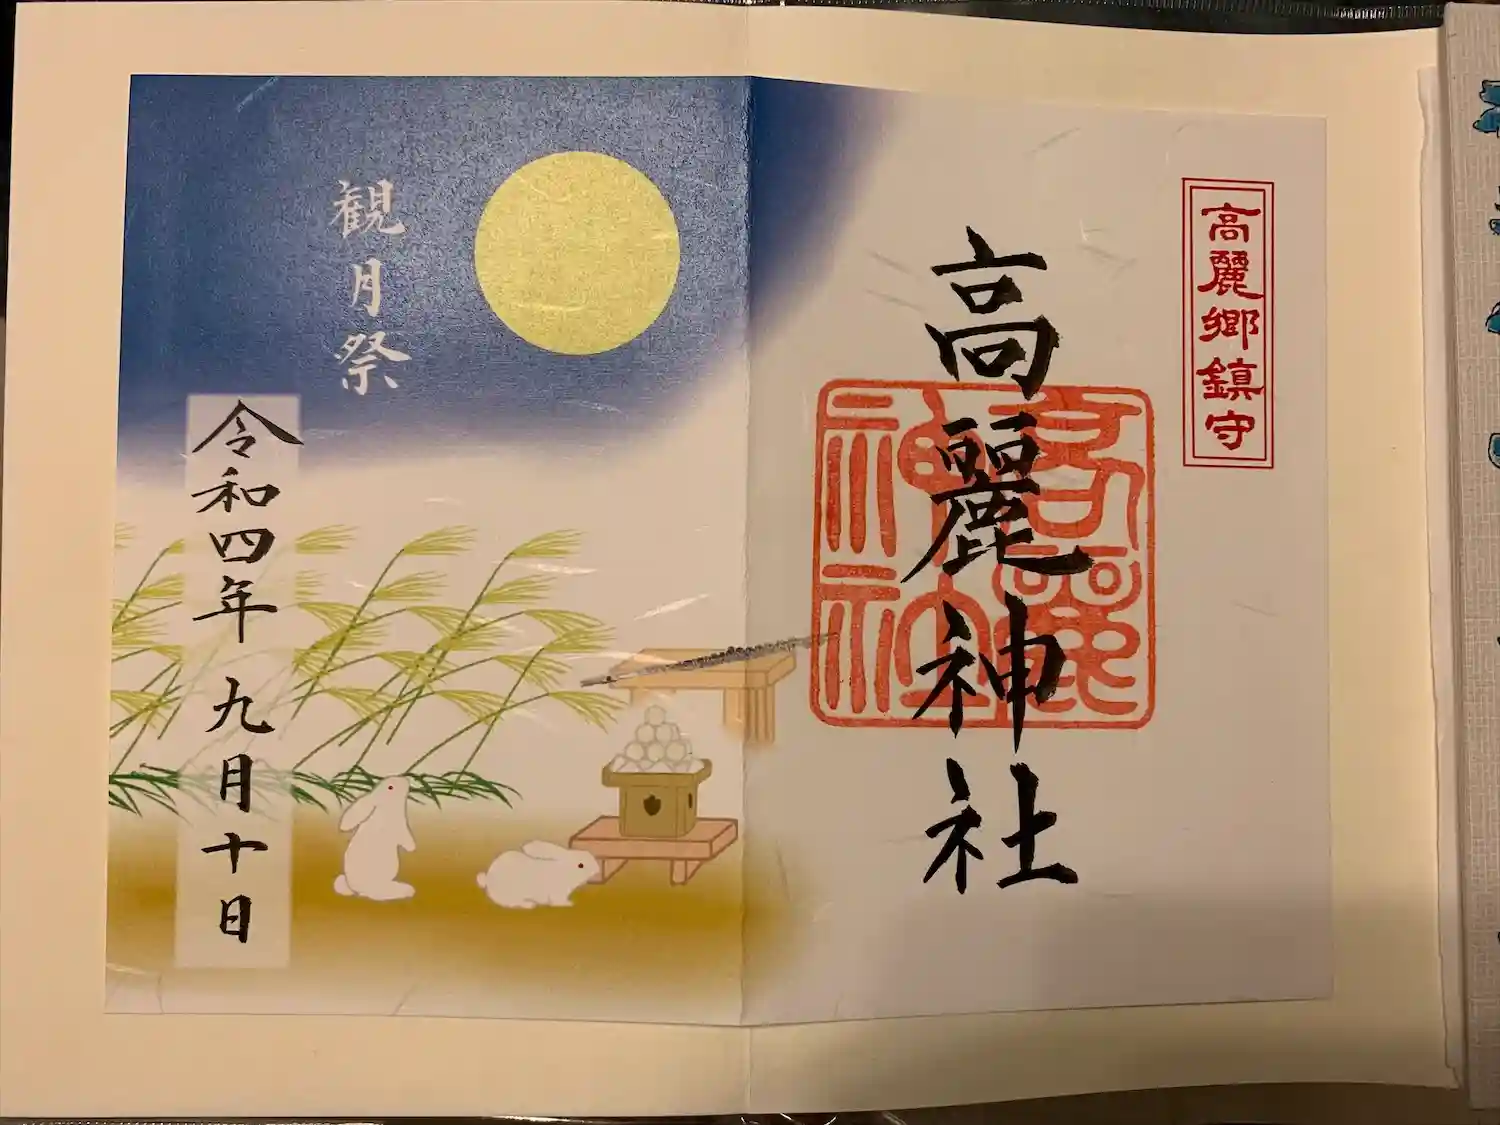 高麗郷鎮守
高麗神社
高麗神社
観月祭
令和四年九月十日